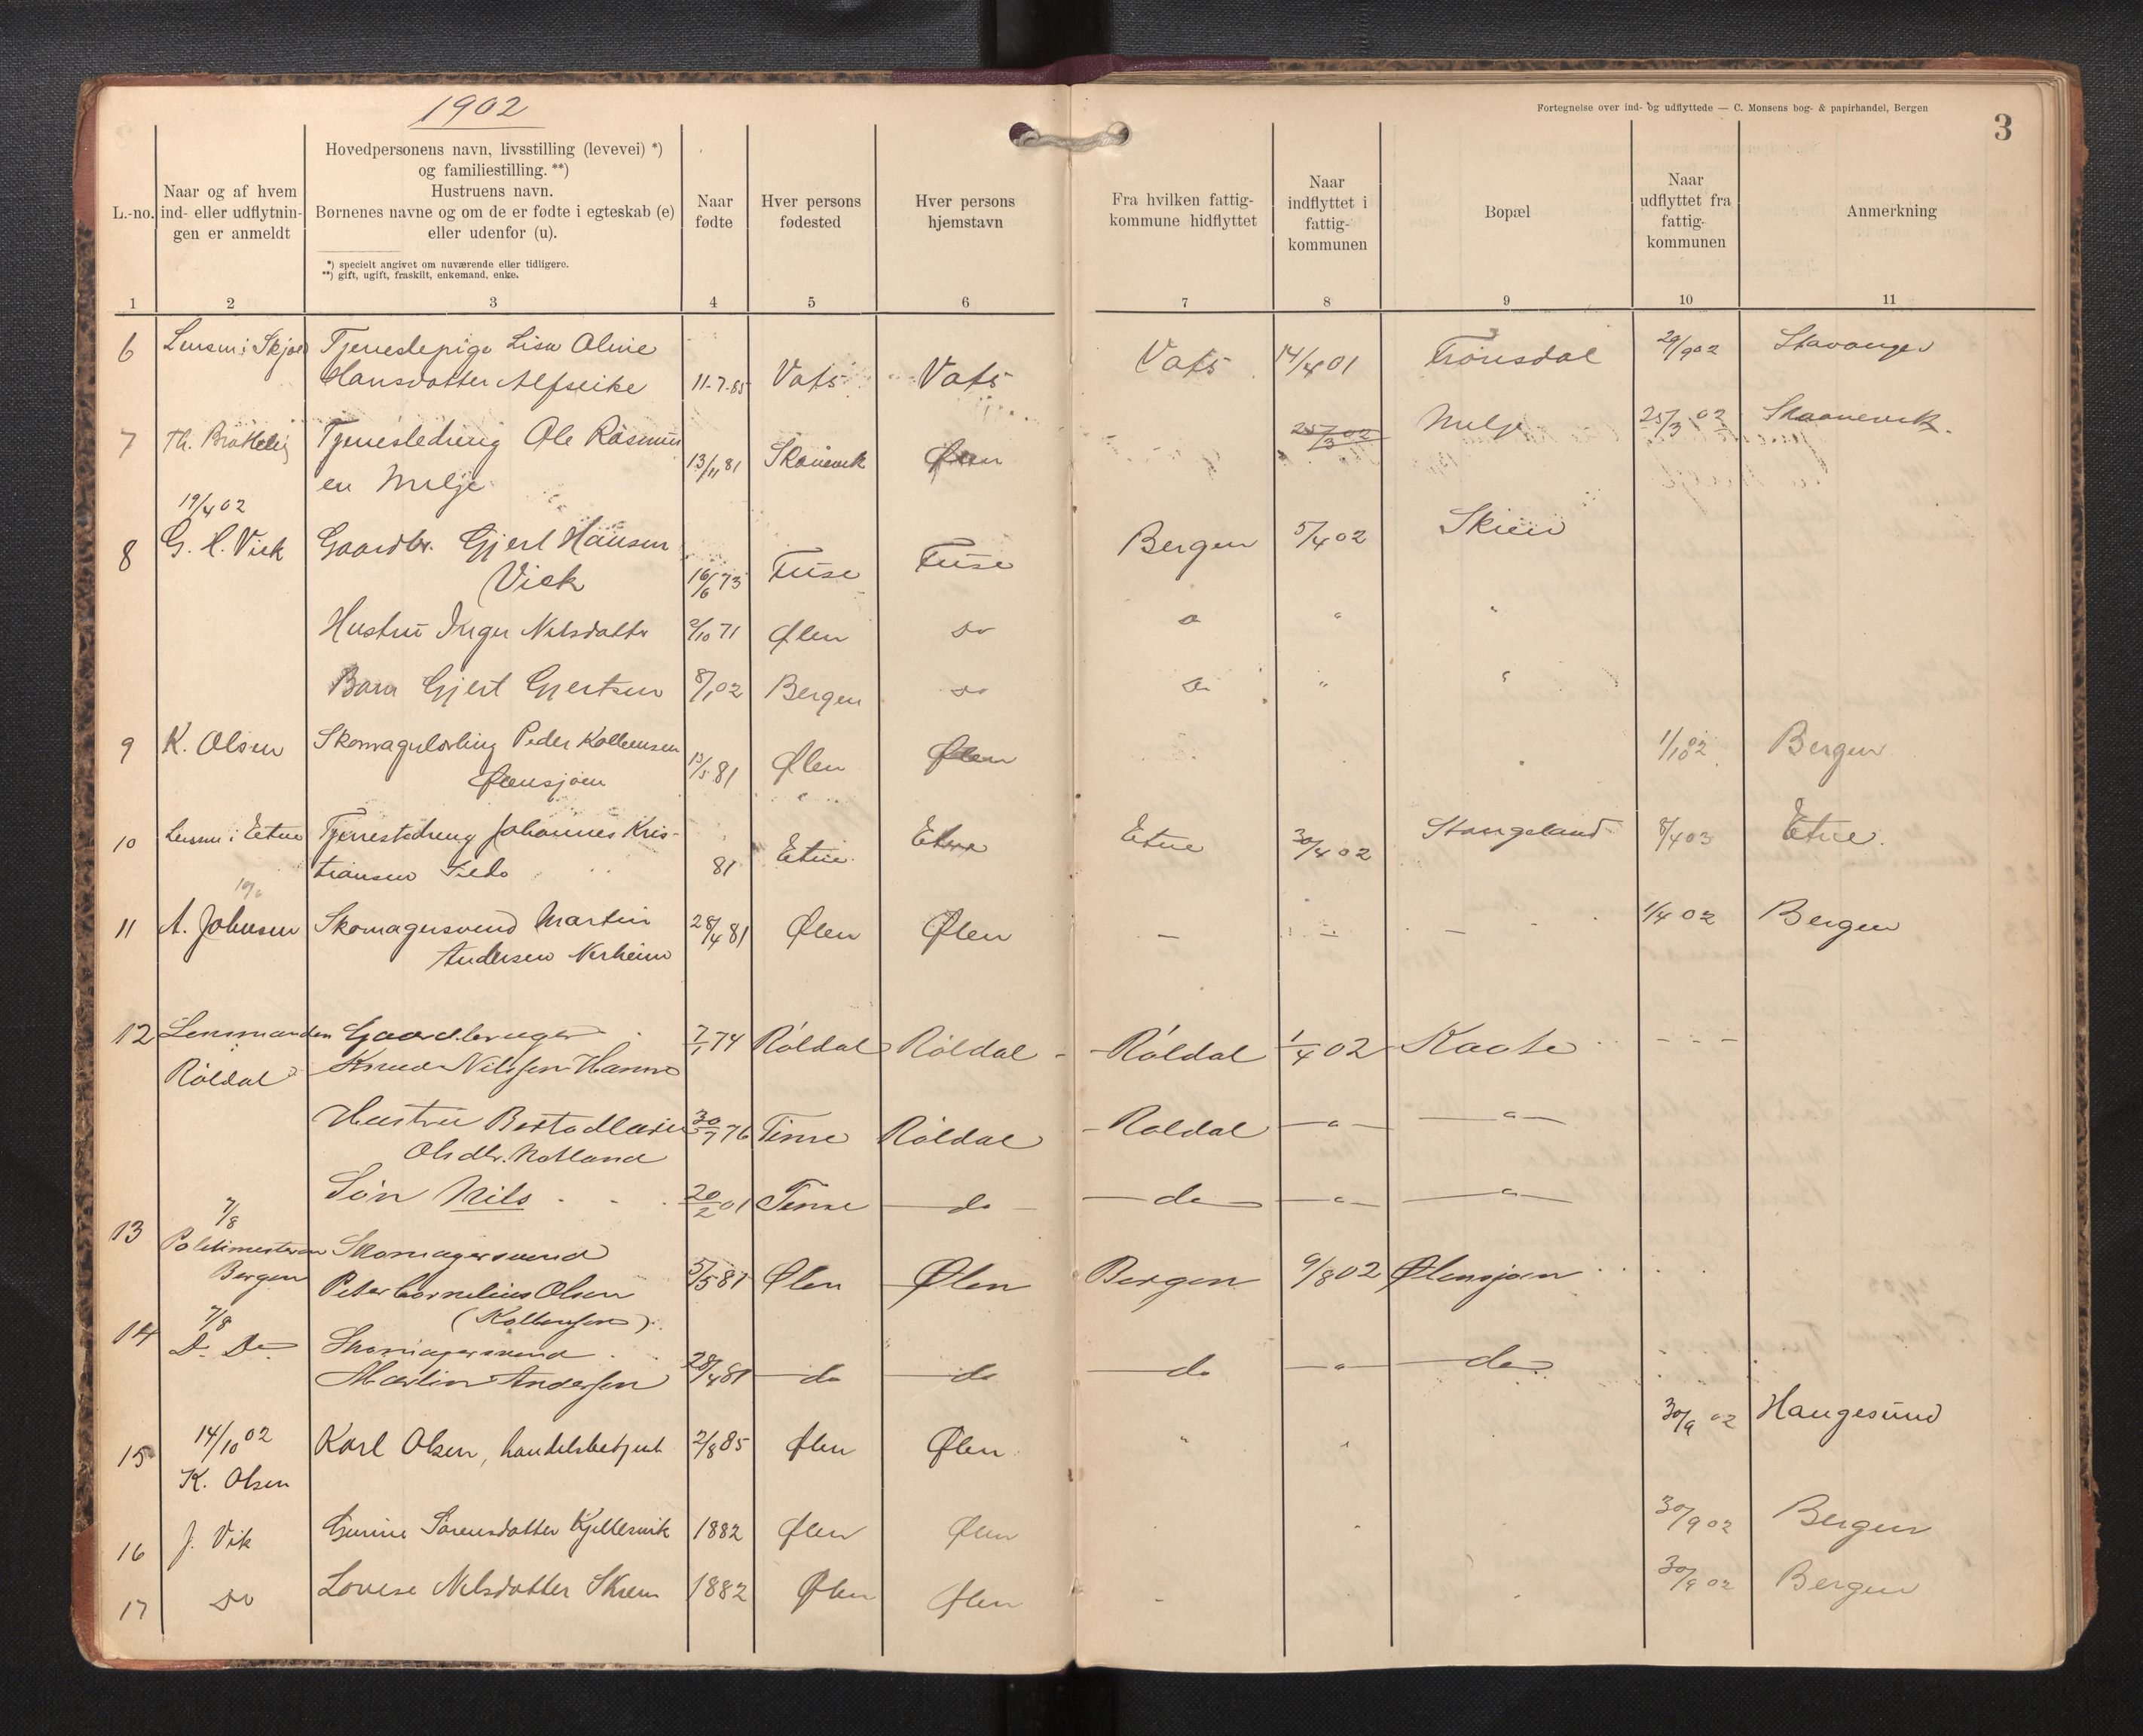 1902
Fortegnelse over ind- og udflyttede — C. Monsens bog- & papirhandel, Bergen
3
L.-no.
Naar og af hvem
ind- eller udflytnin-
gen er anmeldt
Hovedpersonens navn, livsstilling (levevei) *)
og familiestilling. **)
Hustruens navn.
Børnenes navne og om de er fødte i egteskab (e)
eller udenfor (u).
*) specielt angivet om nuværende eller tidligere.
**) gift, ugift, fraskilt, enkemand, enke.
Naar
fødte
Hver persons
fødested
Hver persons
hjemstavn
Fra hvilken fattig-
kommune hidflyttet
Naar
indflyttet i
fattig-
kommunen
Bopæl
Naar
udflyttet fra
fattig-
kommunen
Anmerkning
1 2 3 4 5 6 7 8 9 10 11
6 Lensm. i Skjold Tjenestepige Lisa Oline Vats 14/4 01 29/9 02 Stavanger
Hansdatter Alfseike 11-7-85 Vats Vats
7 Tjenestedreng Ole Rasmus 25/3 02 Melje 25/3 02 Skaanevik.
en Melje 13/11 81 Skånevik Ølen
19/4 02
8 G. H. Viek Gaardbr. Gjert Hansen Bergen 5/4 02 Skien
Viek 16/6 73 Fuse Fuse
Hustru Inger Nilsdatter 9/10 71 Ølen do do " "
Barn Gjert Gjertsen 8/1 02 Bergen do do " "
9 K. Olsen Skomagerlærling Peder Kolbensen 1/10 02 Bergen
Ølensjøen 13/5 81 Ølen Ølen
10 Lensm. i Etne Tjenestedreng Johannes Kris- Etne 30/4 02 Stangeland 8/4 03 Etne.
tiansen 81 Etne Etne
11 A. Johnsen Skomagersvend Martin 28/4 81 Ølen Ølen — — — 1/4 02 Bergen
Andersen Nerheim
12 Lensmanden Gaardbruger 7/1 74 Røldal Røldal - Røldal 1/4 02 Kaate - - -
Røldal Knud Nilssen Hamre
Hustru Berta Marie 30/7 76 Time Røldal - Røldal — " — — " —
Olsdtr. Notland
Søn Nils 20/2 01 Time do — do — " — — " —
7/8
13 Politimesteren Skomagersvend
Bergen Peter Cornelius Olsen 5/5 81 Ølen Ølen Bergen 9/8 02 Ølensjøen
(Kolbensen).
7/8
14 Do Do Skomagersvend
Martin Andersen 28/4 81 do do do — " — do
15 14/10 02 Karl Olsen, handelsbetjent 2/8 85 Ølen Ølen " " 30/9 02 Haugesund
K. Olsen
16 J. Vik Gurine Sørensdatter Kjellesvik 1882 Ølen Ølen 30/9 02 Bergen
17 do Lovise Nilsdatter Skrem 1882 Ølen Ølen 30/9 02 Bergen